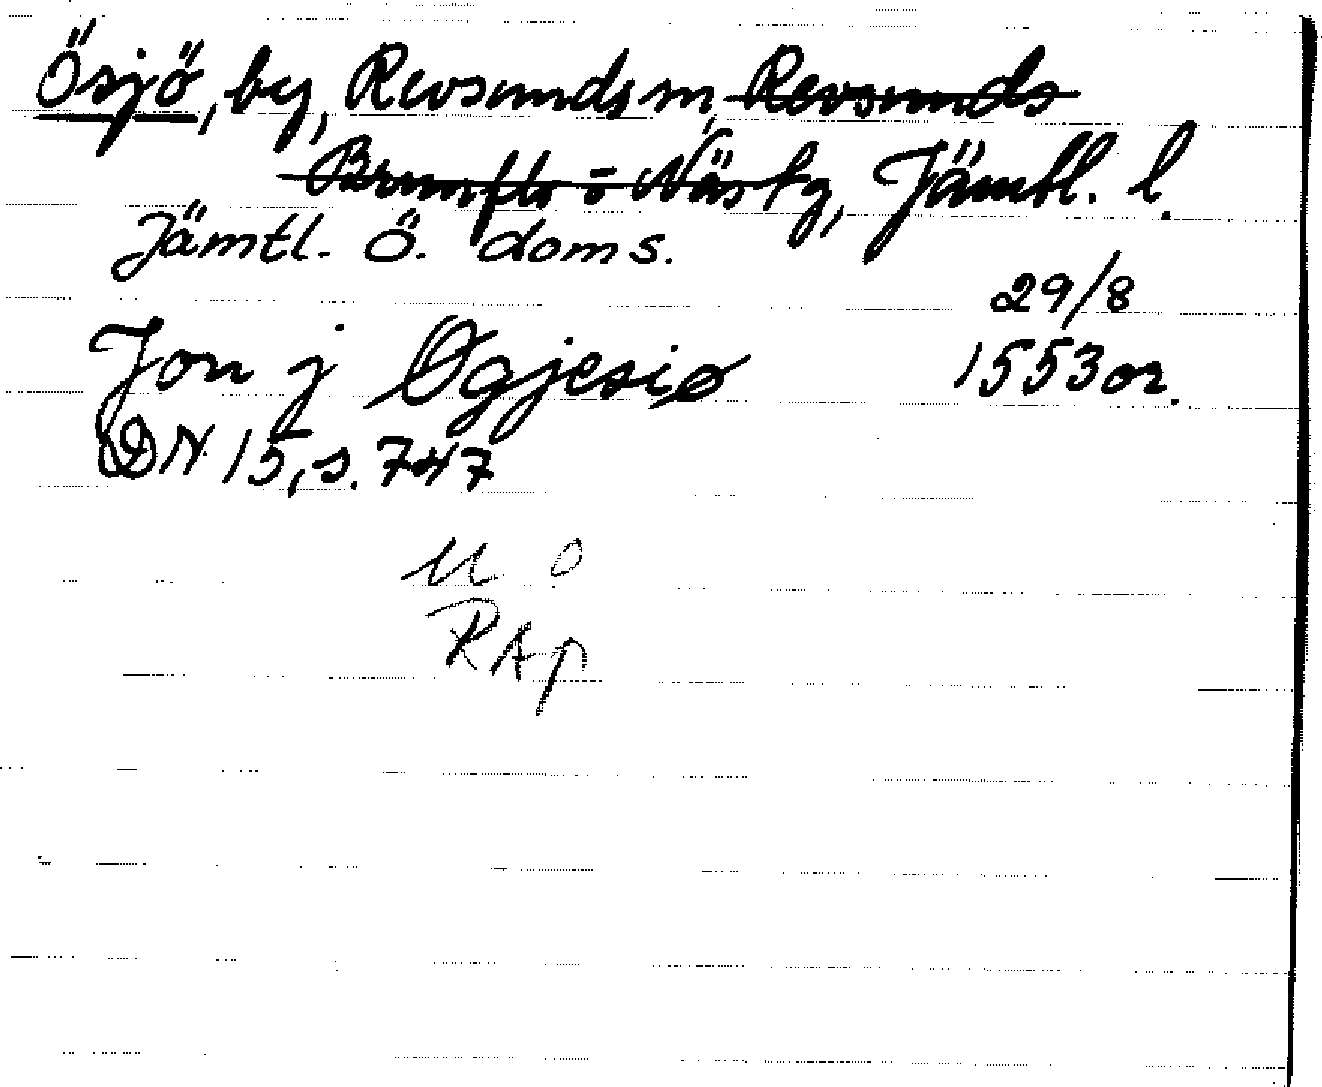 Ösjö, by, Revsunds sn, Revsunds
Brunflo o Näs tg, Jämtl. l.
Jämtl. Ö. doms.
29/8
Jon j Øgjesiø 1553 or.
DN 15, s. 747
RAP